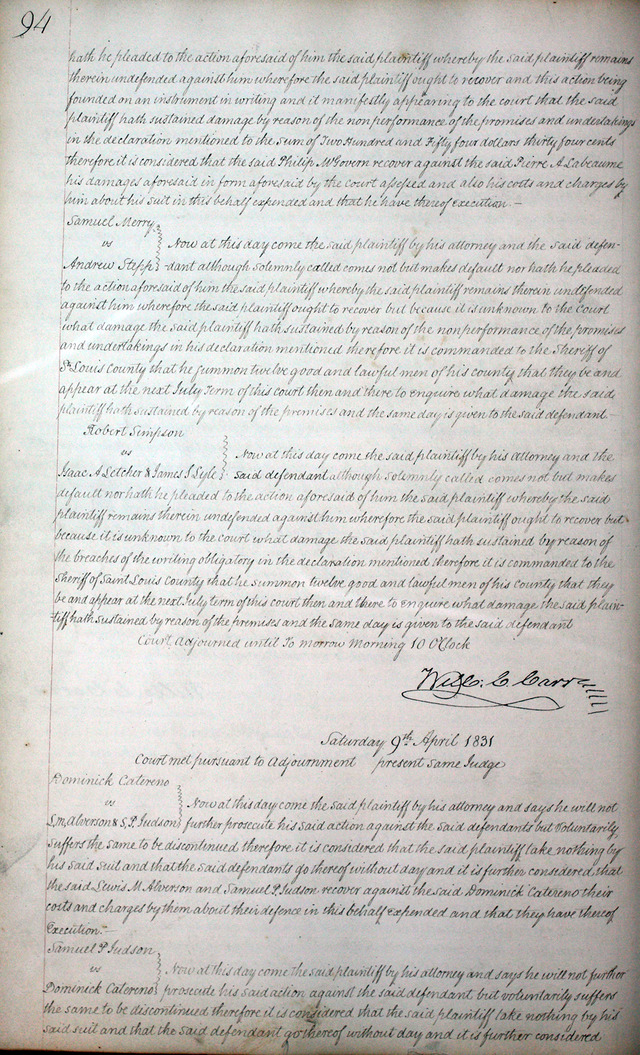 94
hath he pleaded to the action aforesaid of him the said plaintiff whereby the said plaintiff remains
therein undefended against him wherefore the said plaintiff ought to recover and this action being
founded on an instrument in writing and it manifestly appearing to the court that the said
plaintiff hath sustained damage by reason of the nonperformance of the promises and undertakings
in the declaration mentioned to the sum of Two Hundred and Fifty four dollars thirty four cents
therefore it is considered that the said Philip McGovern recover against the said Peirre A Labeaume
his damages aforesaid in form aforesaid by the court assessed and also his costs and charges by
him about his suit in this behalf expended and that he have thereof execution.—
Samuel Merry
vs } Now at this day come the said plaintiff by his attorney and the said defen-
Andrew Stepp } dant although solemnly called comes not but makes default nor hath he pleaded
to the action aforesaid of him the said plaintiff whereby the said plaintiff remains therein undefended
against him wherefore the said plaintiff ought to recover but because it is unknown to the Court
what damage the said plaintiff hath sustained by reason of the nonperformance of the promises
and undertakings in his declaration mentioned therefore it is commanded to the Sheriff of
St Louis County that he summon twelve good and lawful men of his county that they be and
appear at the next July term of this court then and there to enquire what damage the said
plaintiff hath sustained by reason of the premises and the same day is given to the said defendant.—
Robert Simpson
vs } Now at this day come the said plaintiff by his attorney and the
Isaac A Letcher & James S Lyle } said defendant although solemnly called comes not but makes
default nor hath he pleaded to the action aforesaid of him the said plaintiff whereby the said
plaintiff remains therein undefended against him wherefore the said plaintiff ought to recover but
because it is unknown to the court what damage the said plaintiff hath sustained by reason of
the breaches of the writing obligatory in the declaration mentioned therefore it is commanded to the
Sheriff of Saint Louis County that he summon twelve good and lawful men of his County that they
be and appear at the next July term of this court then and there to Enquire what damage the said plain-
tiff hath sustained by reason of the premises and the same day is given to the said defendant
Court Adjourned until To morrow Morning 10 O'Clock
Will: C Carr
Saturday 9th April 1831
Court met pursuant to Adjournment present same Judge
Dominick Catereno
vs } Now at this day come the said plaintiff by his attorney and says he will not
L.M. Alverson & S.P. Judson } further prosecute his said action against the said defendants but Voluntarily
suffers the same to be discontinued therefore it is considered that the said plaintiff take nothing by
his said suit and that the said defendants go thereof without day and it is further considered that
the said Lewis M. Alverson and Samuel P. Judson recover against the said Dominick Catereno their
costs and charges by them about their defence in this behalf Expended and that they have thereof
Execution.—
Samuel P Judson
vs } Now at this day come the said plaintiff by his attorney and says he will not further
Dominick Catereno } prosecute his said action against the said defendant but voluntarily suffers
the same to be discontinued therefore it is considered that the said plaintiff take nothing by his
said suit and that the said defendant go thereof without day and it is further considered